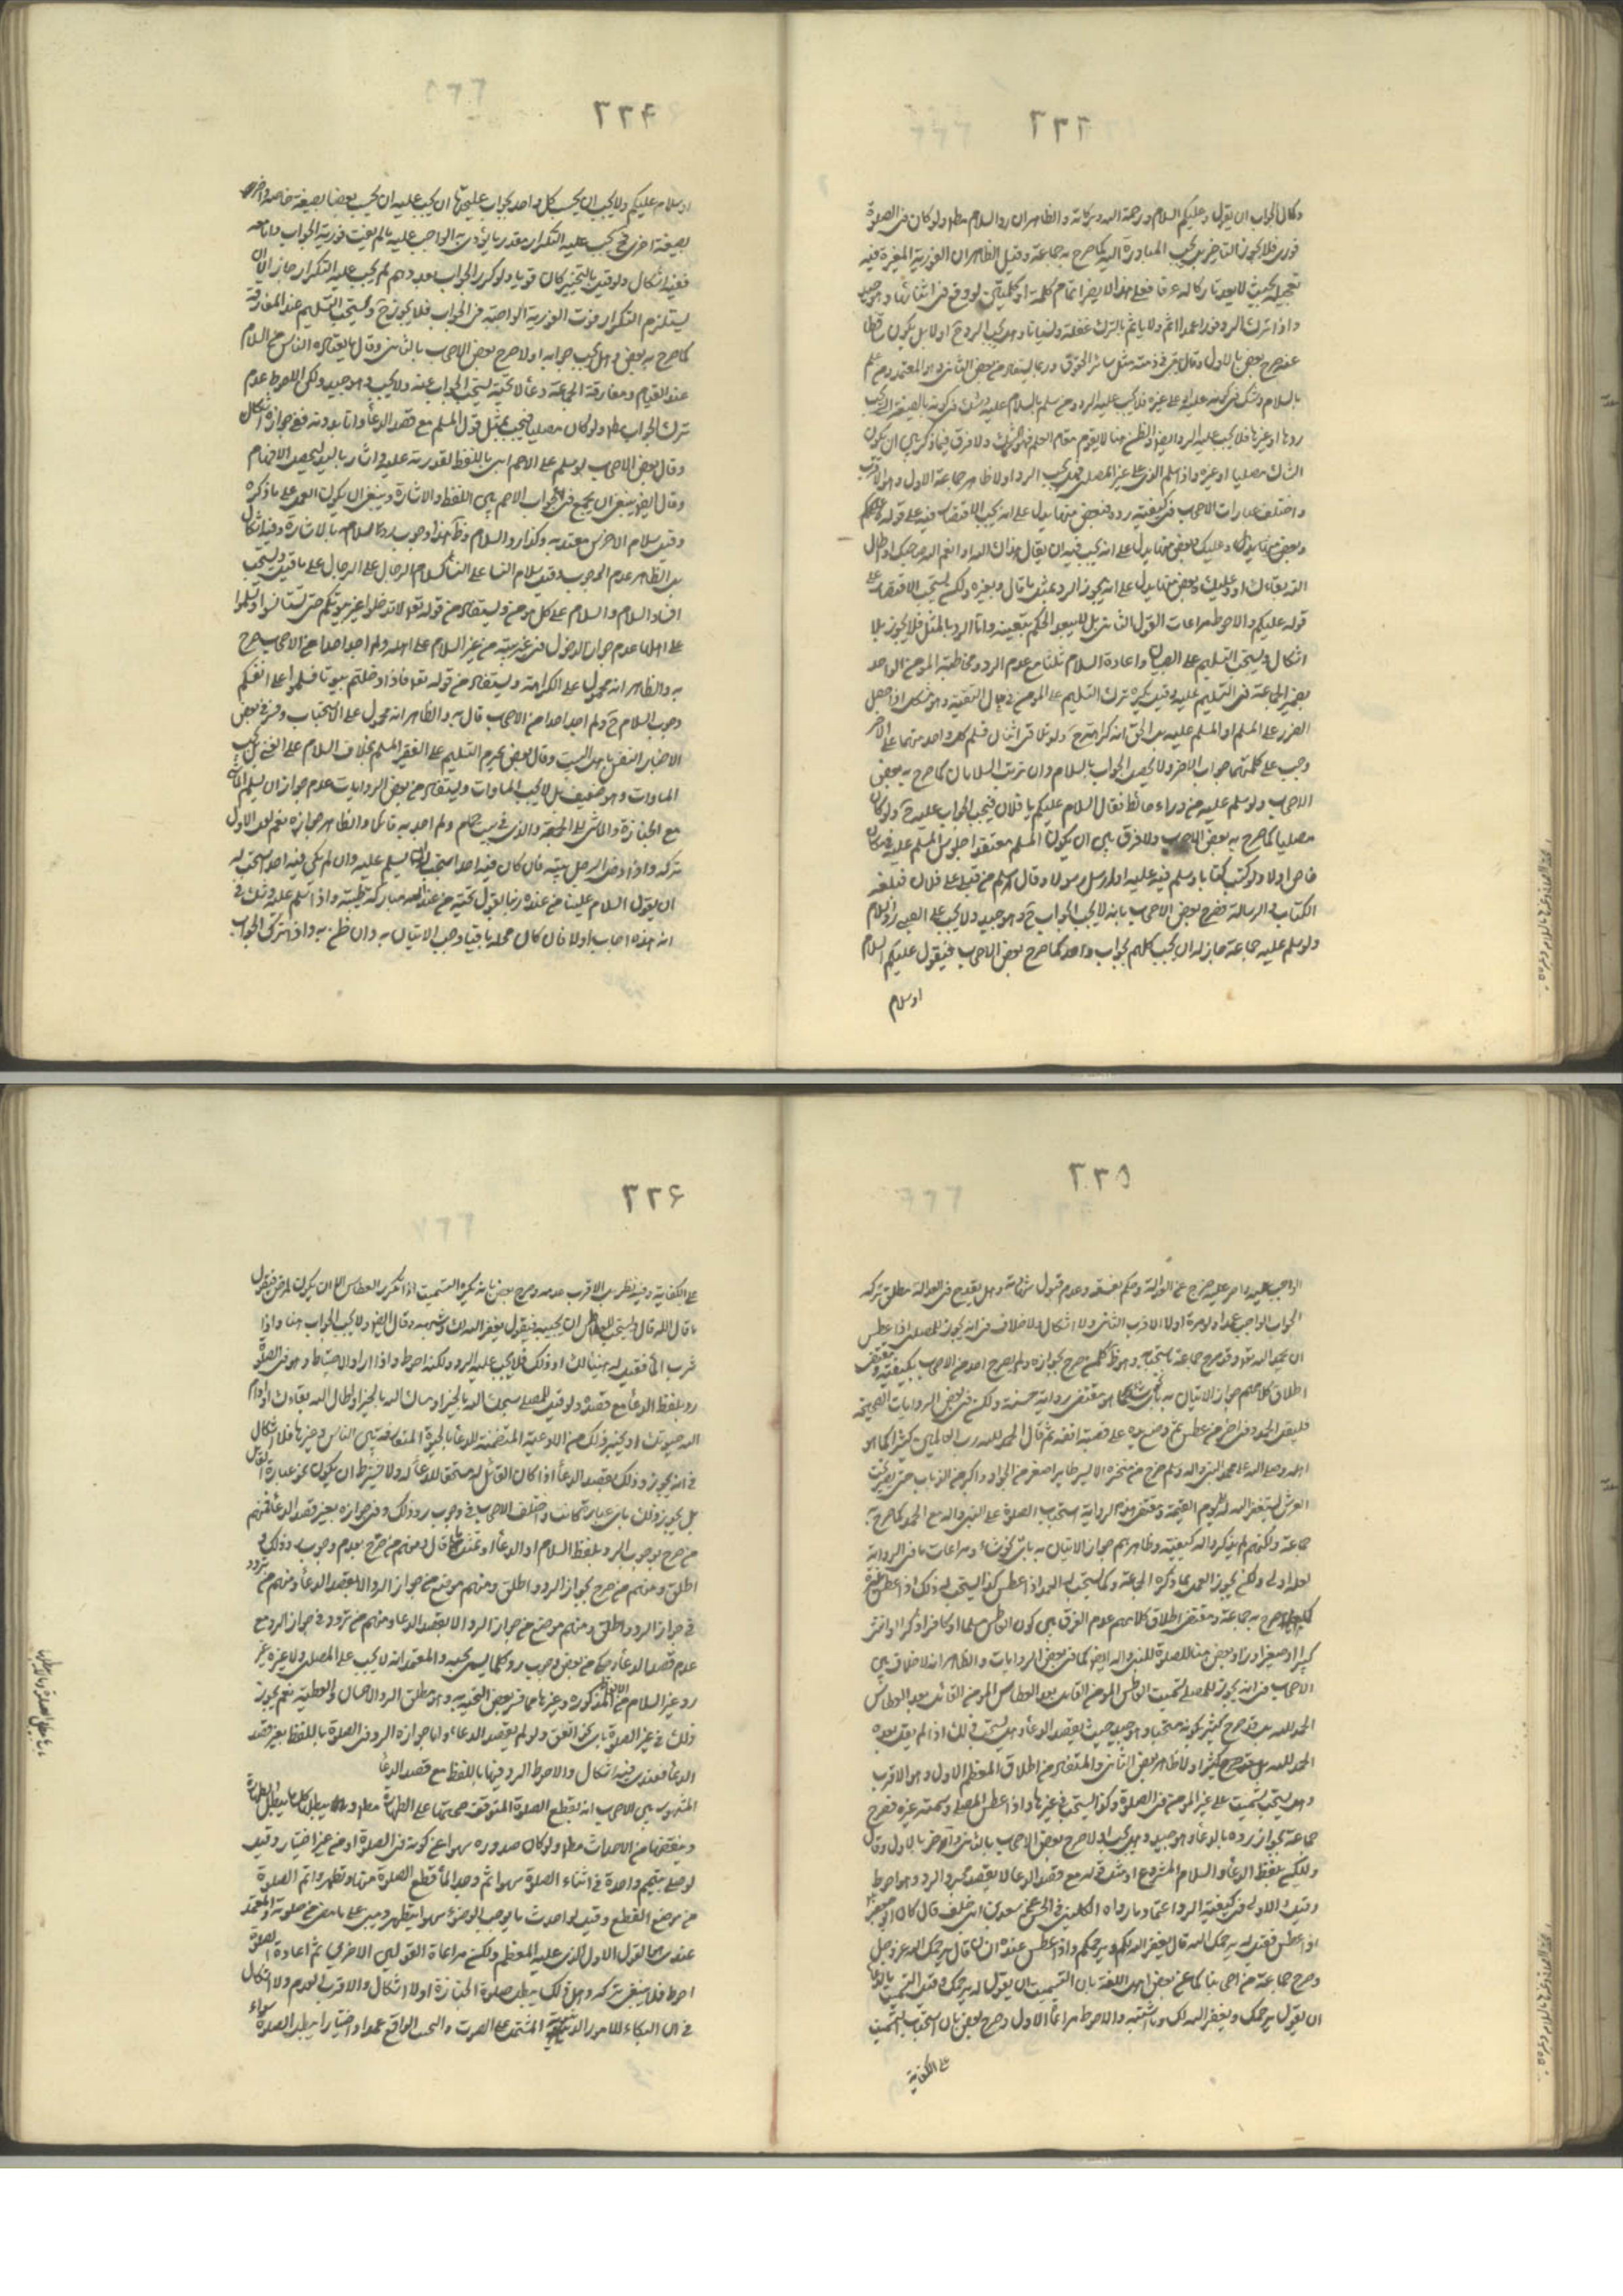 ٢٢٣
وكان الجواب ان يقول وعليكم السلام ورحمة الله وبركاته والظاهر ان رد السلام مطلقا ولو كان فى الصلوة
فورى فلا يجوز التاخير بل يجب المبادرة اليه كما صرح به جماعة وقيل الظاهر ان الفورية المعتبرة فيه
تعجيله بحيث لا يعد تاركا له عرفا فعلى هذا لا يضر اتمام كلمة او كلمتين لو وقع فى اثنائها وهو جيد
واذا ترك الرد فورا عمدا اثم ولا ياثم بالترك غفلة ونسيانا وهل يجب الرد ح اولا بل يكون
صرح بعض بالاول وقال يبقى فى ذمته مثل سائر الحقوق وربما يستفاد من بعض الثانى وهو المعتمد ومن علم
بالسلام وشك فى كونه عليه او على غيره فلا يجب عليه الرد ومن سلم بالسلام عليه وشك فى كونه بالصيغة التى يجب
ردها او غيرها فلا يجب عليه الرد ايضا والظن هنا لا يقوم مقام العلم ولا فرق فيما ذكر بين ان يكون
الشاك مصليا او غيره واذا سلم الذمى على غير المصلى فهل يجب الرد اولا ظاهر جماعة الاول وهو الاقرب
واختلف عبارات الاصحاب فى كيفية رده فبعض منها يدل على انه يجب الاقتصار فيه على قوله عليكم
وبعض منها يدل وعليك وبعض منها يدل على انه يجب فيه ان يقال هداك الله او انعم الله صباحك او اطال
الله بقاءك او وعليك وبعض منها يدل على انه يجوز الرد عليه بمثل ما قال وبغيره ولكن يستحب الاقتصار على
قوله عليكم والاحوط مراعات القول الثانى بل لا يبعد الحكم بتعينه واما الرد بالمثل فلا يجوز بلا
اشكال ويستحب التسليم على الصبيان واعادة السلام ثلثا مع عدم الرد ومخاطبة المؤمن الواحد
بضمير الجماعة فى التسليم عليه وقيل يكره ترك التسليم على المؤمن فى حال التقية وهو مشكل اذا حصل
الضرر على المسلم او المسلم عليه بل الحق انه كراهة ح ولو تلاقى اثنان فسلم كل واحد منهما على الاخر
وجب على كل منهما جواب الاخر ولا يحصل الجواب بالسلام وان ترتب السلامان كما صرح به بعض
الاصحاب ولو سلم عليه من وراء حائط فقال السلام عليكم يا فلان فيجب الجواب عليه ح ولو كان
مصليا كما صرح به بعض الاصحاب ولا فرق بين ان يكون المسلم معتقدا جلوس المسلم عليه فى مكان
خاص اولا ولو كتب كتابا وسلم فيه عليه او ارسل رسولا وقال سلم من قبلى على فلان فبلغه
الكتاب والرسالة فصرح بعض الاصحاب بانه لا يجب الجواب ح وهو جيد ولا يجب على الصبى رد السلام
ولو سلم عليه جماعة جاز له ان يجيب كلهم بجواب واحد كما صرح بعض الاصحاب فيقول عليكم السلام
او سلام
٢٢۴
او سلام عليكم ولا يجب ان يجيب كل واحد بجواب عليحدة ان يجب عليه ان يجيب بعضا بصيغة خاصة واخرى
بصيغة اخرى فح يجب عليه التكرار بقدر ما يؤدى به الواجب عليه ما لم يفت فورية الجواب واما معه
ففيه اشكال ولو قيل بالتخيير كان قويا ولو كرر الجواب بعدد هم لم يجب عليه التكرار جاز الا ان
يستلزم التكرار فوت الفورية الواجبة فى الجواب فلا يجوز ح ويستحب التسليم عند المفارقة
كما صرح به بعض وهل يجب جوابه اولا صرح بعض الاصحاب بالثانى وقال ما يعتاده الناس من السلام
عند القيام ومفارقة الجماعة دعاء لا تحية يستحب الجواب عنه ولا يجب وهو جيد ولكن الاحوط عدم
ترك الجواب مطلقا ولو كان مصليا فيجيب بمثل قول المسلم مع قصد الدعاء واما بدونه ففى جوازه اشكال
وقال بعض الاصحاب لو سلم على الاصم اتى باللفظ لقدرته عليه واشار باليد ليحصل الافهام
وقال ايضا ينبغى ان يجمع فى جواب الاصم بين اللفظ والاشارة وينبغى ان يكون العمل على ما ذكره
وقيل سلام الاخرس معتد به وكذا رد السلام وظاهره وجوب رد سلامه بالاشارة وفيه اشكال
بل الظاهر عدم الوجوب وقيل سلام النساء على النساء كسلام الرجال على الرجال على ما قيل ويستحب
افشاء السلام والسلام على كل مؤمن ويستفاد من قوله تعالى لا تدخلوا غير بيوتكم حتى تستانسوا وتسلموا
على اهلها عدم جواز الدخول فى غير بيته من غير السلام على اهله ولم اجد احدا من الاصحاب صرح
به والظاهر انه محمول على الكراهة ويستفاد من قوله تعالى فاذا دخلتم بيوتا فسلموا على انفسكم
وجوب السلام ح ولم اجد احدا من الاصحاب قال به والظاهر انه محمول على الاستحباب وفسر فى بعض
الاخبار النفس باهل البيت وقال بعض يحرم التسليم على الفقير المسلم بخلاف السلام على الغنى بل يجب
المساوات وهو ضعيف بل لا يجب المساوات ويستفاد من بعض الروايات عدم جواز ان يسلم الماشى
مع الجنازة والماشى الى الجمعة والذى فى بيت حمام ولم اجد به قائلا والظاهر جوازه نعم لعل الاولى
تركه واذا دخل الرجل بيته فان كان فيه احد استحب ان يسلم عليه وان لم يكن فيه احد استحب له
ان يقول السلام علينا من عند ربنا يقول تحية من عند الله مباركة طيبة واذا سلم عليه وشك فى
انه هذه اجاب اولا فان كان محله باقيا وجب الاتيان به وان ظن به واذا ترك الجواب
٢٢۵
الواجب عليه واصر عليه خرج عن العدالة وحكم بفسقه وعدم قبول شهادته وهل يقدح فى العدالة مطلق تركه
الجواب الواجب عمدا ولو مرة اولا الاقرب الثانى ولا اشكال لا خلاف فى انه يجوز للمصلى اذا عطس
ان يحمد الله تعالى وقد صرح جماعة باستحبابه وهو ظاهر كل من صرح بجوازه ولم يصرح احد من الاصحاب بكيفيته ومقتضى
اطلاق كلامهم جواز الاتيان به باى نحو شاء كما هو مقتضى رواية حسنة ولكن فى بعض الروايات الصحيحة
فليقل الحمد وفى اخر من عطس ثم وضع يده على قصبة انفه ثم قال الحمد لله رب العالمين كثيرا كما هو
اهله وصلى الله على محمد النبى واله وسلم خرج من منخره الايسر طاير اصغر من الجراد واكبر من الذباب حتى يصير تحت
العرش يستغفر الله له الى يوم القيمة ومقتضى هذه الرواية استحباب الصلوة على النبى واله مع الحمد كما صرح به
جماعة ولكنهم لم يذكروا له كيفية وظاهرهم جواز الاتيان به باى نحو شاء ومراعات ما فى الرواية
لعله اولى ولكن يجوز العمل بما ذكره الجماعة وكما يستحب له الحمد اذا عطس كذا يستحب له ذلك اذا عطس غيره
كما صرح به جماعة ومقتضى اطلاق كلامهم عدم الفرق بين كون العاطس مسلما او كافرا ذكرا او انثى
كبيرا او صغيرا وزاد بعض هنا الصلوة للنبى واله ايضا كما فى بعض الروايات والظاهر انه لا خلاف بين
الاصحاب فى انه يجوز للمصلى تسميت العاطس المؤمن القائل بعد العطاس المؤمن القائل بعد العطاس
الحمد لله بل قد صرح كثير بكونه مستحبا وهو جيد حيث يقصد الدعاء وهل يستحب ذلك اذا لم يقل بعده
الحمد لله بل صرح كثير اولا ظاهر بعض الثانى والمستفاد من اطلاق المعظم الاول وهو الاقرب
وهل يستحب تسميت على غير المؤمن فى الصلوة وكذا يستحب فى غيرها واذا عطس المصلى وسمته غيره فصرح
جماعة بجواز رده بالدعاء وهو جيد وهل يجب اولا صرح بعض الاصحاب بالثانى واخر بالاول وقال
وليكن بلفظ الدعاء والسلام المشروع او مثل قوله مع قصد الدعاء لا بقصد مجرد الرد وهو احوط
وقيل الاولى فى كيفية الرد اعتمادا ما رواه الكلينى فى الحسن عن سعد بن ابى خلف قال كان ابو جعفر
اذا عطس فقيل له يرحمك الله قال يغفر الله لكم ويرحمكم واذا عطس عنده انسان قال يرحمك الله عز وجل
وصرح جماعة من اصحابنا كما عن بعض اهل اللغة بان التسميت بان يقول له يرحمك وقيل التسميت بالدعاء
ان يقول يرحمك ويغفر الله لك وما اشبهه والاحوط مراعاة الاول وصرح بعض بان استحباب التسميت
على الكفاية
٢٢۶
على الكفاية وفيه نظر بل الاقرب عدمه وصرح بعض بانه يكره التسميت اذا تكرر العطاس الا ان يكون لمرض فيقول
ما قال الله قال ويستحب للعاطس ان يجيبه فيقول يغفر الله لك وشبهه وقال ايضا ولا يجب الجواب هنا واذا
شرب الماء فقيل له هنيئا لك او ذلك فلا يجب عليه الرد ولكنه احوط واذا اراد الاحتياط وهو فى الصلوة
رد بلفظ الدعاء مع قصده ولو قيل للمصلى صبحك الله بالخير او مساك الله بالخير او طال الله بقاءك او ادام
الله حيوتك او بغير ذلك من الادعية المتضمنة للدعاء بالخير المتعارفة بين الناس وغيرها فلا اشكال
فى انه يجوز رد ذلك بقصد الدعاء اذا كان القائل له مستحقا للدعاء له ولا يشترط ان يكون بنحو عبارة القائل
بل يجوز ذلك باى عبارة كانت واختلف الاصحاب فى وجوب رد ذلك وفى جوازه بغير قصد الدعاء فمنهم
من صرح بوجوب الرد بلفظ السلام او الدعاء او بمثل ما قال ومنهم من صرح بعدم وجوب رد ذلك و
اطلق ومنهم من صرح بجواز الرد واطلق ومنهم من منع من جواز الرد الا بقصد الدعاء ومنهم من تردد
فى جواز الرد واطلق ومنهم من منع من جواز الرد الا بقصد الدعاء ومنهم من تردد فى جواز الرد مع
عدم قصد الدعاء وحكى عن بعض وجوب رد كل ما يسمى تحية والمعتمد انه لا يجب على المصلى ولا غيره غير
رد غير السلام من الالفاظ المذكورة وغيرها مما فسر بعض التحية به وهو مطلق البر والاحسان والعطية نعم يجوز
ذلك فى غير الصلوة باى نحو اتفق ولو لم يقصد الدعاء واما جوازه الرد فى الصلوة باللفظ بغير قصد
الدعاء فعندى فيه اشكال والاحوط الرد فيها باللفظ مع قصد الدعاء
المشهور بين الاصحاب انه يقطع الصلوة المتوقفة صحتها على الطهارة مطلقا كل ما يبطل الطهارة
وينقضها من الاحداث مطلقا ولو كان صدوره سهوا عن كونه فى الصلوة او من غير اختيار وقيل
لو صلى بتيمم واحدث فى اثناء الصلوة سهوا ثم وجد الماء قطع الصلوة وتطهر واتم الصلوة
من موضع القطع وقيل لو احدث ما يوجب الوضوء سهوا يتطهر ويبنى على ما مضى من صلوته والمعتمد
عندى هو القول الاول الذى عليه المعظم ولكن مراعاة القولين الاخرين ثم اعادة الصلوة
احوط فلا ينبغى تركه وهل ذلك يبطل صلوة الجنازة اولا اشكال والاقرب العدم ولا اشكال
فى ان البكاء للامور الدنيوية المشتمل على الصوت والنحيب الواقع عمدا واختيارا يبطل الصلوة سواء